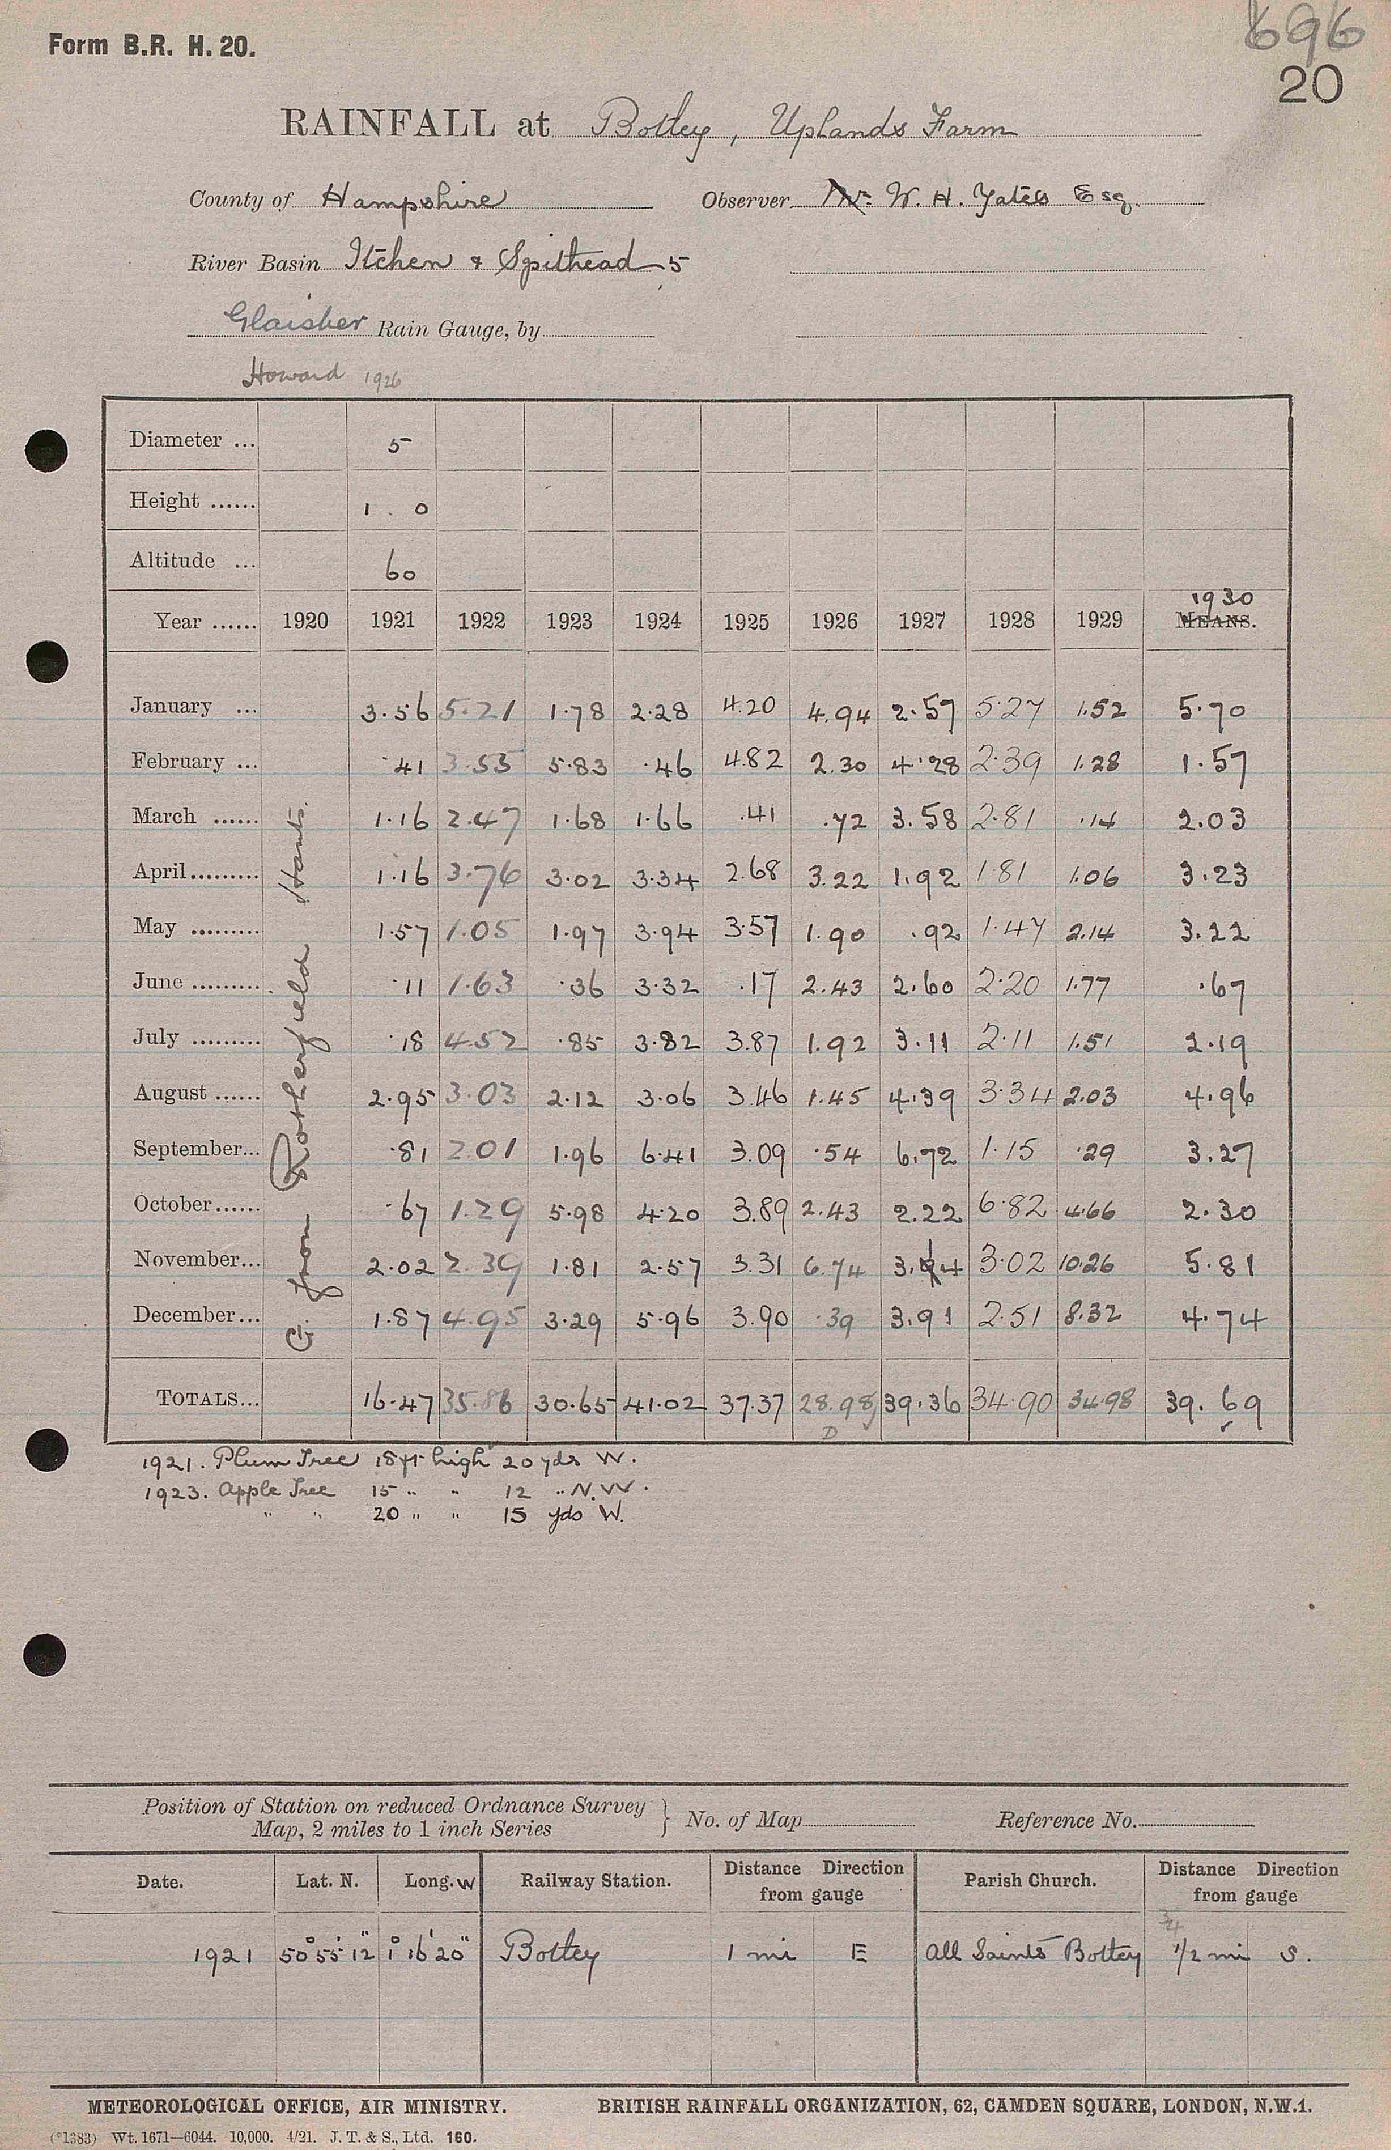 Form B.R. H. 20.
696
20
RAINFALL at Botley, Uplands Farm
County of Hampshire Observer Mr. W. H. Yates Esq.
River Basin Itchen & Spithead 5
Glaisher Rain Gauge, by
Howard 1926
Diameter ... 5
Height ...... 1 . 0
Altitude ... 60
1930
Year ...... 1920 1921 1922 1923 1924 1925 1926 1927 1928 1929 MEANS.
G. from Rotherfield Hants.
January ... 3.56 5.21 1.78 2.28 4.20 4.94 2.57 5.27 1.52 5.70
February ... .41 3.55 5.83 .46 4.82 2.30 4.28 2.39 1.28 1.57
March ...... 1.16 2.47 1.68 1.66 .41 .72 3.58 2.81 .14 2.03
April......... 1.16 3.76 3.02 3.34 2.68 3.22 1.92 1.81 1.06 3.23
May ......... 1.57 1.05 1.97 3.94 3.57 1.90 .92 1.47 2.14 3.22
June ......... .11 1.63 .36 3.32 .17 2.43 2.60 2.20 1.77 .67
July ......... .18 4.52 .85 3.82 3.87 1.92 3.11 2.11 1.51 2.19
August ...... 2.95 3.03 2.12 3.06 3.46 1.45 4.39 3.34 2.03 4.96
September... .81 2.01 1.96 6.41 3.09 .54 6.72 1.15 .29 3.27
October...... .67 1.29 5.98 4.20 3.89 2.43 2.22 6.82 4.66 2.30
November... 2.02 2.39 1.81 2.57 3.31 6.74 3.14 3.02 10.26 5.81
December... 1.87 4.95 3.29 5.96 3.90 .39 3.91 2.51 8.32 4.74
TOTALS... 16.47 35.86 30.65 41.02 37.37 28.98 39.36 34.90 34.98 39.69
D
1921. Plum Tree 18 ft high 20 yds W.
1923. Apple Tree 15 " " 12 " N.W.
" " 20 " " 15 yds W.
Position of Station on reduced Ordnance Survey Map, 2 miles to 1 inch Series } No. of Map Reference No.
Date. Lat. N. Long. W Railway Station. Distance Direction from gauge Parish Church. Distance Direction from gauge
3/4
1921 50° 55' 12" 1° 16' 20" Botley 1 mi E All Saints Botley 1/2 mi S.
METEOROLOGICAL OFFICE, AIR MINISTRY. BRITISH RAINFALL ORGANIZATION, 62, CAMDEN SQUARE, LONDON, N.W.1.
(*1383) Wt. 1671—6044. 10,000. 4/21. J. T. & S., Ltd. 160.